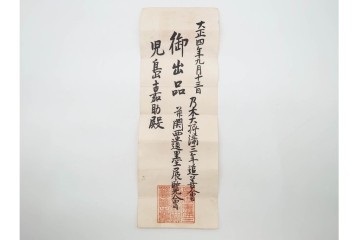 大正四年九月十三日
乃木大将満三年追善会
並関西遺墨展覧会
御出品
児島嘉助殿